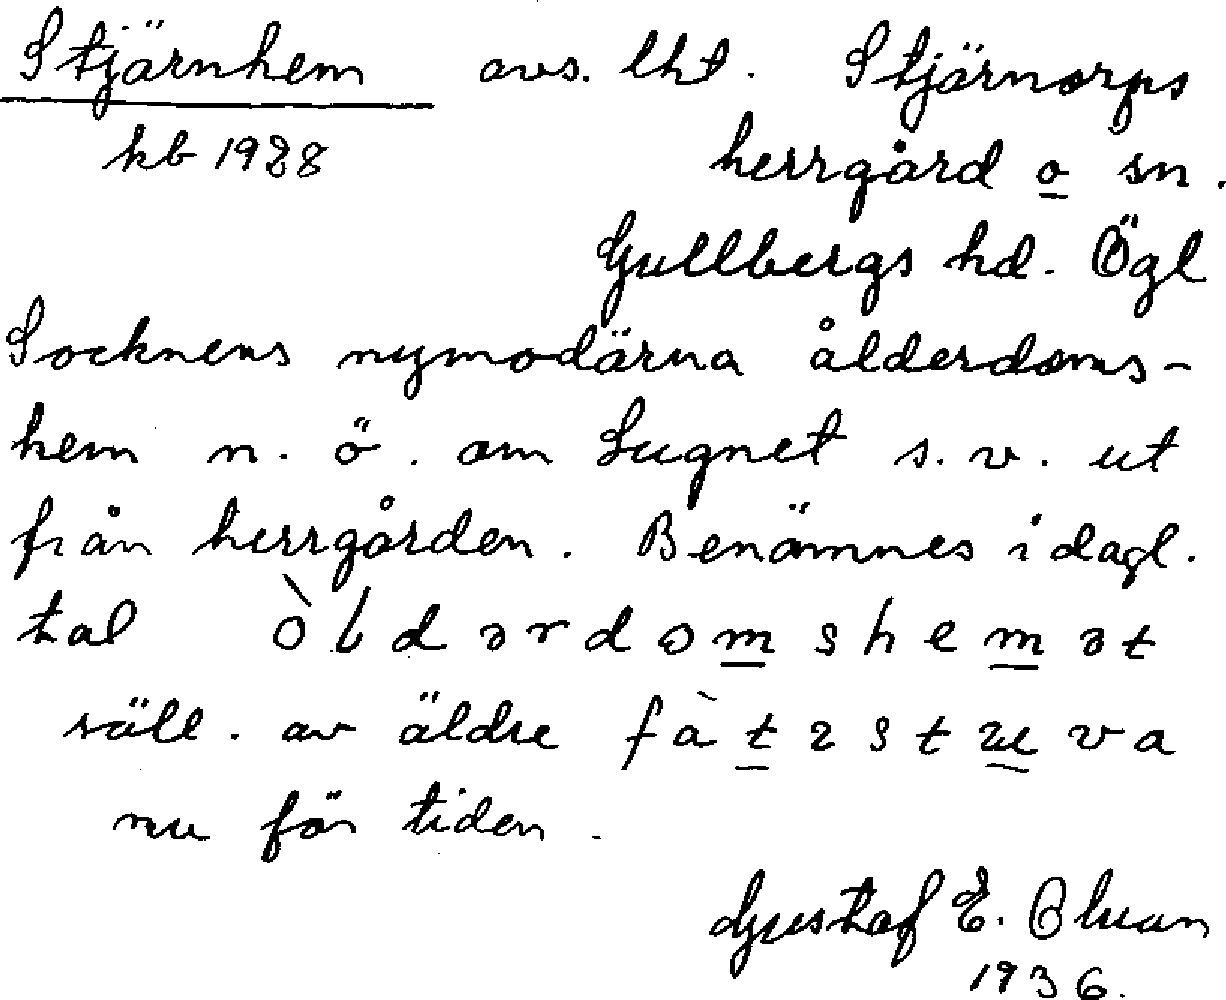 Stjärnhem avs. lht. Stjärnorps
kb 1928 herrgård o sn.
Gullbergs hd. Ögl
Socknens nymodärna ålderdoms-
hem n. ö. om Lugnet s.v. ut
från herrgården. Benämnes i dagl.
tal òldərdomshemət
säll. av äldre fàtɩstuva
nu för tiden.
Gustaf E.
1936.